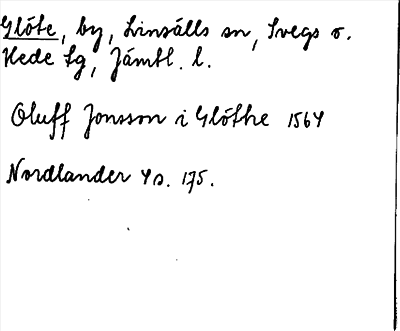 Glöte, by, Linsälls sn, Svegs o.
Hede tg, Jämtl. l.
Oluff Jonsson i Glöthe 1564
Nordlander 4 s. 175.